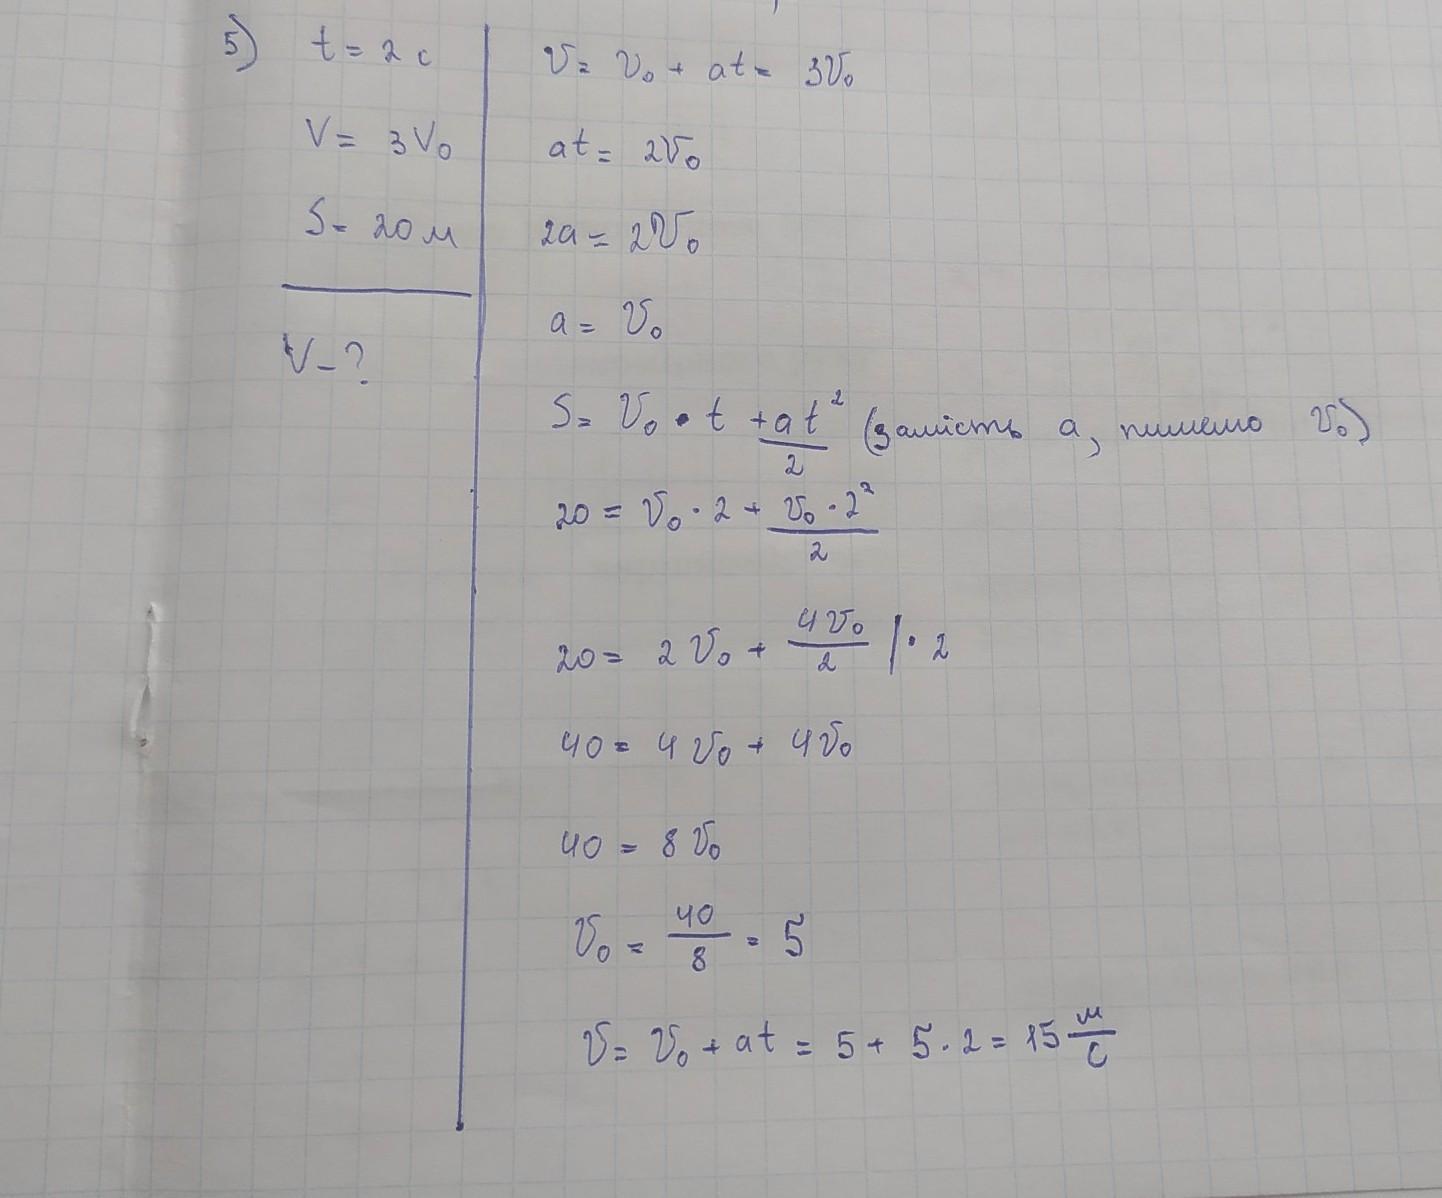 5) t = 2 с
V = 3V₀
S = 20 м
V - ?
V = V₀ + at = 3V₀
at = 2V₀
2a = 2V₀
a = V₀
S = V₀ • t + at²/2 (замість а, пишемо V₀)
20 = V₀ · 2 + V₀ · 2²/2
20 = 2V₀ + 4V₀/2 | · 2
40 = 4V₀ + 4V₀
40 = 8V₀
V₀ = 40/8 = 5
V = V₀ + at = 5 + 5 · 2 = 15 м/с